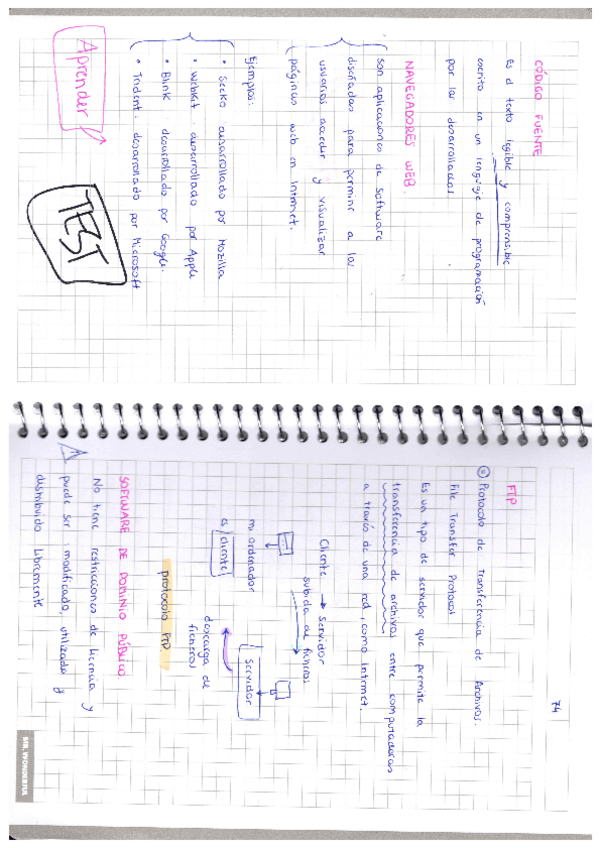 CÓDIGO FUENTE
es el texto legible y comprensible
escrito en un lenguaje de programación
por los desarrollados
NAVEGADORES WEB.
son aplicaciones de software
diseñadas para permitir a los
usuarios acceder y visualizar
páginas web en Internet.
Ejemplos:
• Gecko desarrollado por Mozilla
• Webkit desarrollado por Apple
• Blink desarrollado por Google.
• Trident. desarrollado por Microsoft
Aprender
TEST
74
FTP
Protocolo de Transferencia de Archivos.
File Transfer Protocol
Es un tipo de servidor que permite la
transferencia de archivos entre computadoras
a través de una red, como Internet.
Cliente → Servidor
subida de ficheros
mi ordenador
es cliente
servidor
descarga de
ficheros
protocolo FTP.
SOFTWARE DE DOMINIO PÚBLICO.
No tiene restricciones de Licencia y
puede ser modificado, utilizado y
distribuido libremente
MR. WONDERFUL